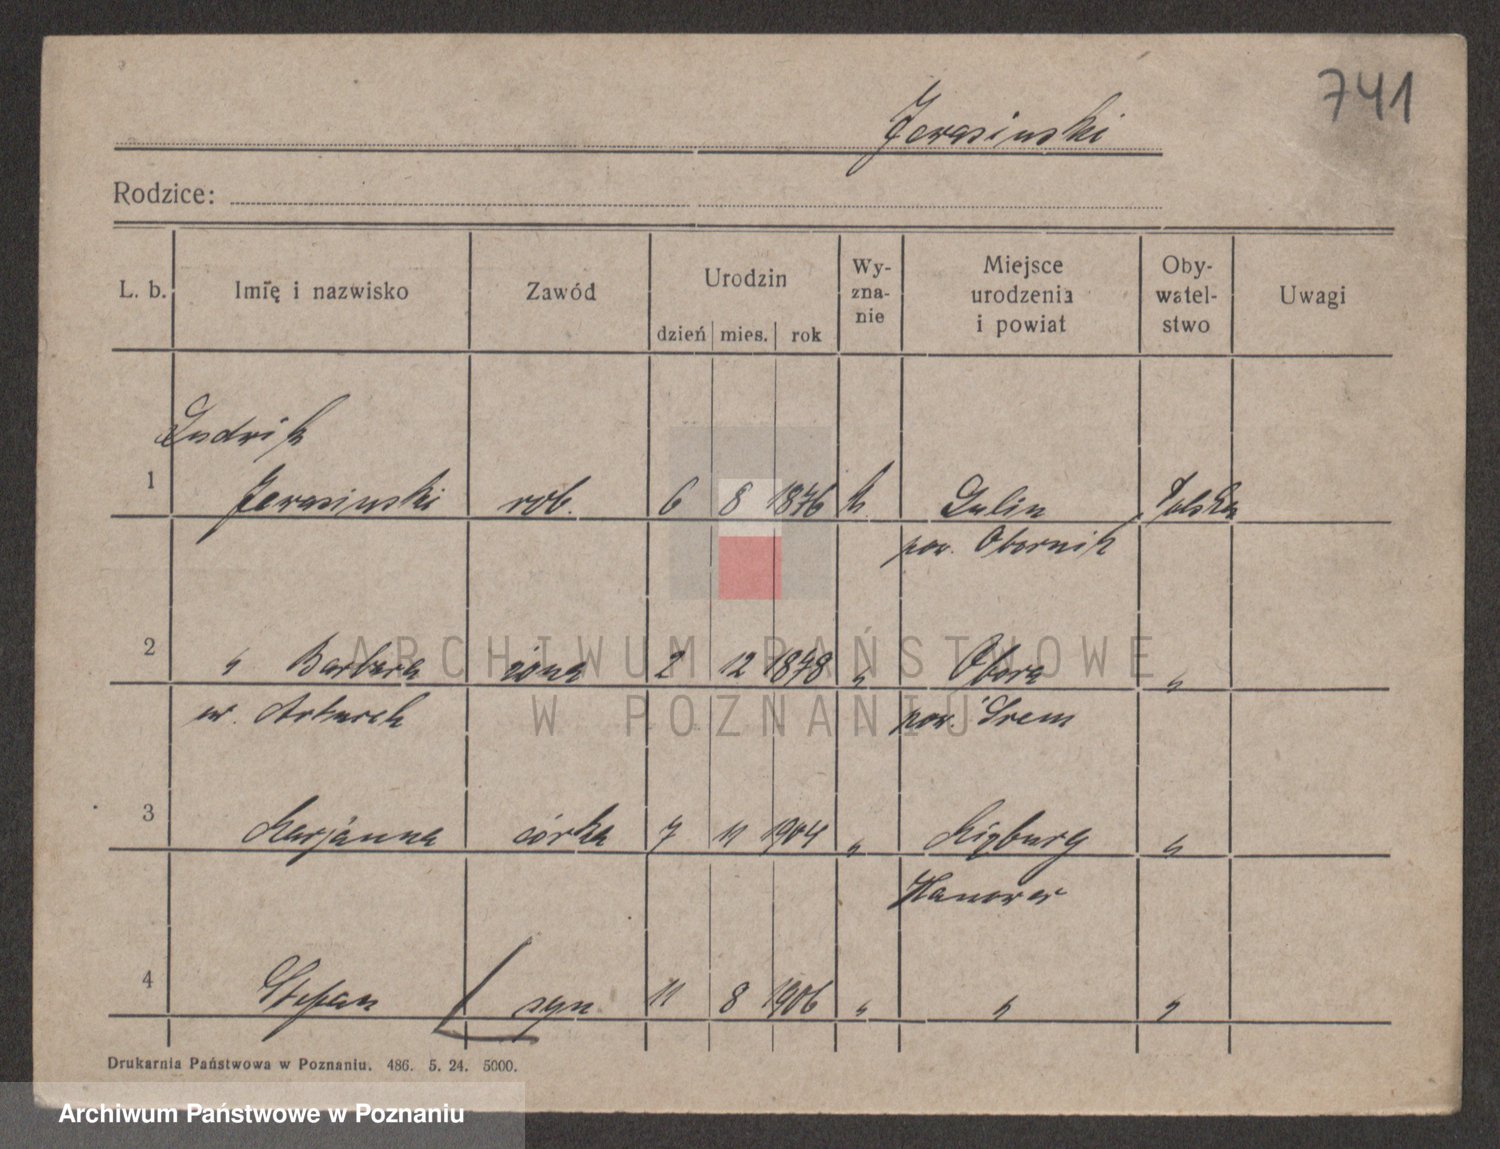 741
Jerasinski
Rodzice:
L. b. Imię i nazwisko Zawód Urodzin dzień mies. rok Wy-zna-nie Miejsce urodzenia i powiat Oby-watel-stwo Uwagi
Ludwik
1 Jerasinski rob. 6 8 1876 k. Lulin Polska
pow. Obornik
2 " Barbara żona 2 12 1878 " Obora "
ur. pow. Śrem
3 Marjanna córka 7 11 1904 " "
Hanower
4 Stefan syn 11 8 1906 " " "
Drukarnia Państwowa w Poznaniu. 486. 5. 24. 5000.
ARCHIWUM PAŃSTWOWE
W POZNANIU
Archiwum Państwowe w Poznaniu